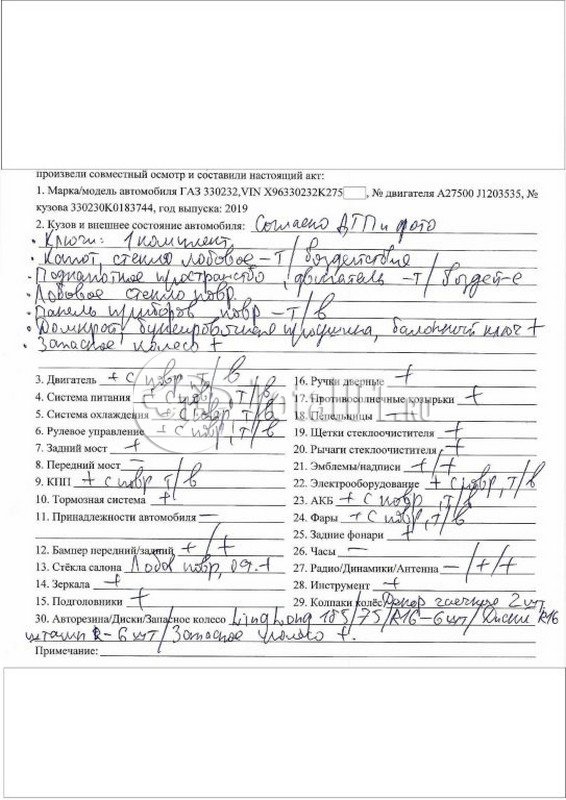 произвели совместный осмотр и составили настоящий акт:
1. Марка/модель автомобиля ГАЗ 330232,VIN X96330232K275, № двигателя A27500 J1203535, №
кузова 330230K0183744, год выпуска: 2019
2. Кузов и внешнее состояние автомобиля: Согласно ДТП и фото
• Ключи: 1 комплект
• Капот, стекло лобовое – Т/ воздействия
• Подкапотное пространство, двигатель – Т/ воздей-е
• Лобовое стекло повр
• Панель приборов повр – Т/в
• Домкрат, буксировочная проушина, балонный ключ +
• Запасное колесо +
3. Двигатель + с повр Т/в
4. Система питания + с повр, Т/в
5. Система охлаждения + с повр, Т/в
6. Рулевое управление + с повр, Т/в
7. Задний мост +
8. Передний мост —
9. КПП + с повр. Т/в
10. Тормозная система +
11. Принадлежности автомобиля —
12. Бампер передний/задний +/+
13. Стёкла салона Лобов повр, ост. +
14. Зеркала +
15. Подголовники +
16. Ручки дверные +
17. Противосолнечные козырьки +
18. Пепельницы —
19. Щетки стеклоочистителя +
20. Рычаги стеклоочистителя +
21. Эмблемы/надписи +/+
22. Электрооборудование + с повр, Т/в
23. АКБ + с повр, Т/в
24. Фары + с повр, Т/в
25. Задние фонари +
26. Часы —
27. Радио/Динамики/Антенна –/+/+
28. Инструмент +
29. Колпаки колёс Декор гаечные 2 шт
30. Авторезина/Диски/Запасное колесо LingLong 185/75/R16–6шт/Диски R16
штамп – 6 шт/Запасное колесо +.
Примечание: